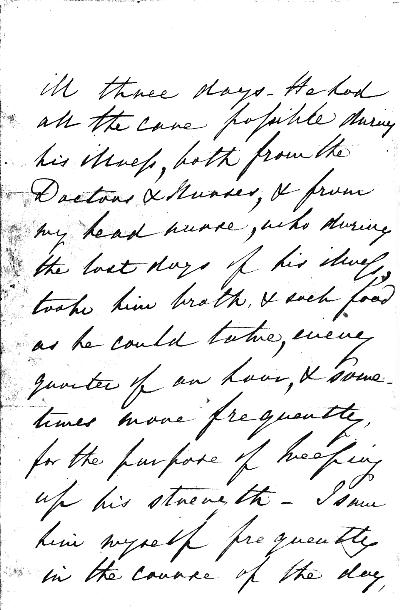 ill three days - He had
all the care possible during
his illness, both from the
Doctors & Nurses, & from
my head nurse, who during
the last days of his illness,
took him broth & such food
as he could take, every
quarter of an hour, & some-
times more frequently,
for the purpose of keeping
up his strength - I saw
him myself frequently
in the course of the day,